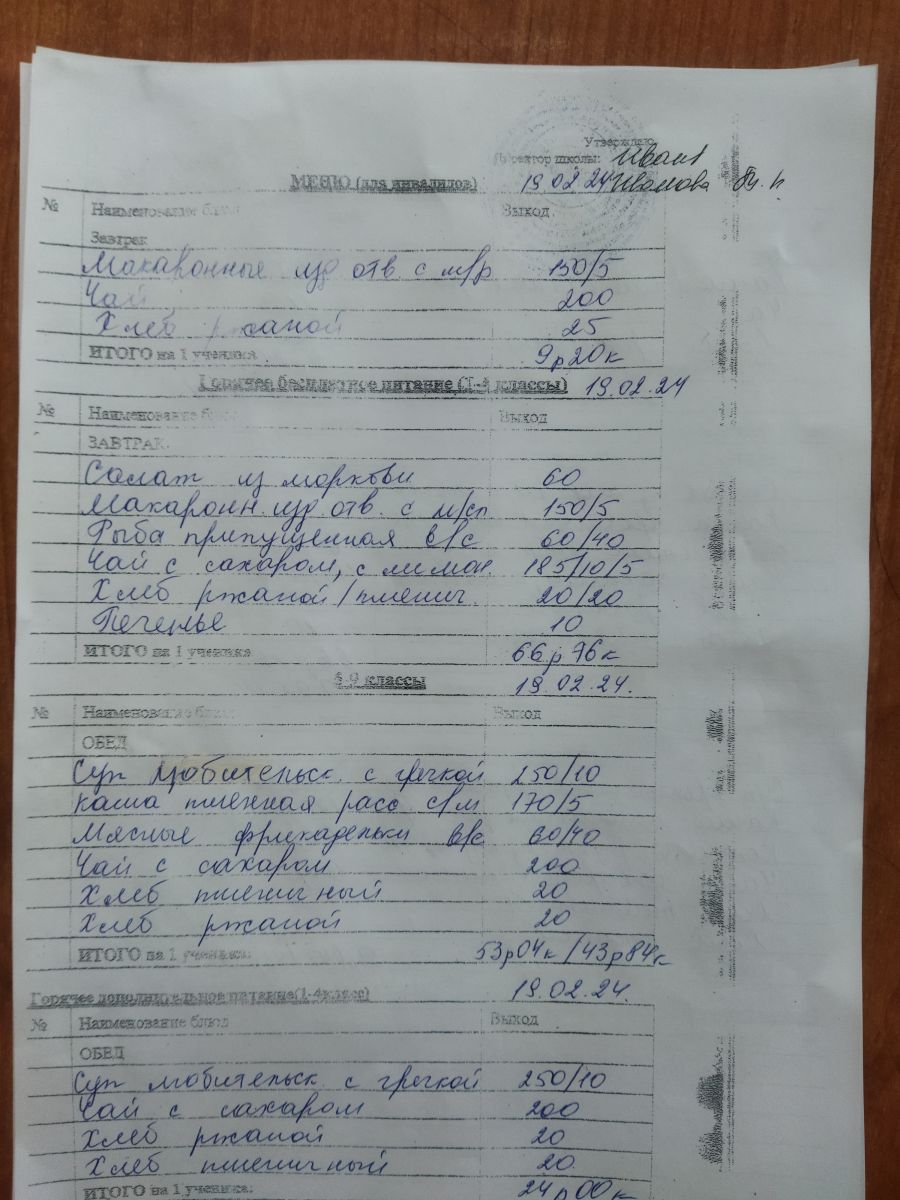 Утверждаю
Директор школы: Иван
МЕНЮ (для инвалидов) 19.02.24 Иванова
№ Наименование блюд Выход
Завтрак
Макаронные изд отв с м/р 150/5
Чай 200
Хлеб ржаной 25
ИТОГО на 1 ученика 9р20к
Горячее бесплатное питание (1-4 классы) 19.02.24
№ Наименование блюд Выход
ЗАВТРАК
Салат из моркови 60
Макаронн. изд отв. с м/сл 150/5
Рыба припущенная в/с 60/40
Чай с сахаром, с лимон. 185/10/5
Хлеб ржаной/пшенич. 20/20
Печенье 10
ИТОГО на 1 ученика 66р76к
5-9 классы 19.02.24.
№ Наименование блюд Выход
ОБЕД
Суп любительск. с гречкой 250/10
каша пшенная расс с/м 170/5
Мясные фрикадельки в/с 60/40
Чай с сахаром 200
Хлеб пшеничный 20
Хлеб ржаной 20
ИТОГО на 1 ученика: 53р04к/43р84к
Горячее дополнительное питание(1-4класс) 19.02.24.
№ Наименование блюд Выход
ОБЕД
Суп любительск. с гречкой 250/10
Чай с сахаром 200
Хлеб ржаной 20
Хлеб пшеничный 20
ИТОГО на 1 ученика: 24р00к